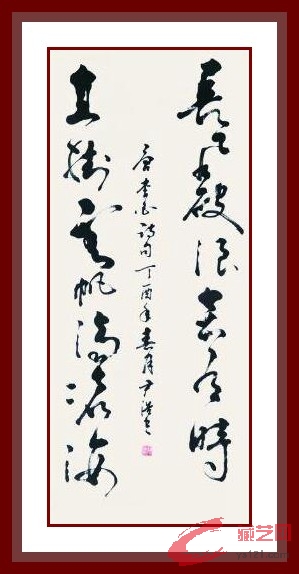 長風破浪會有時
直掛雲帆濟滄海
唐李白詩句丁酉年春月尹
藏艺网